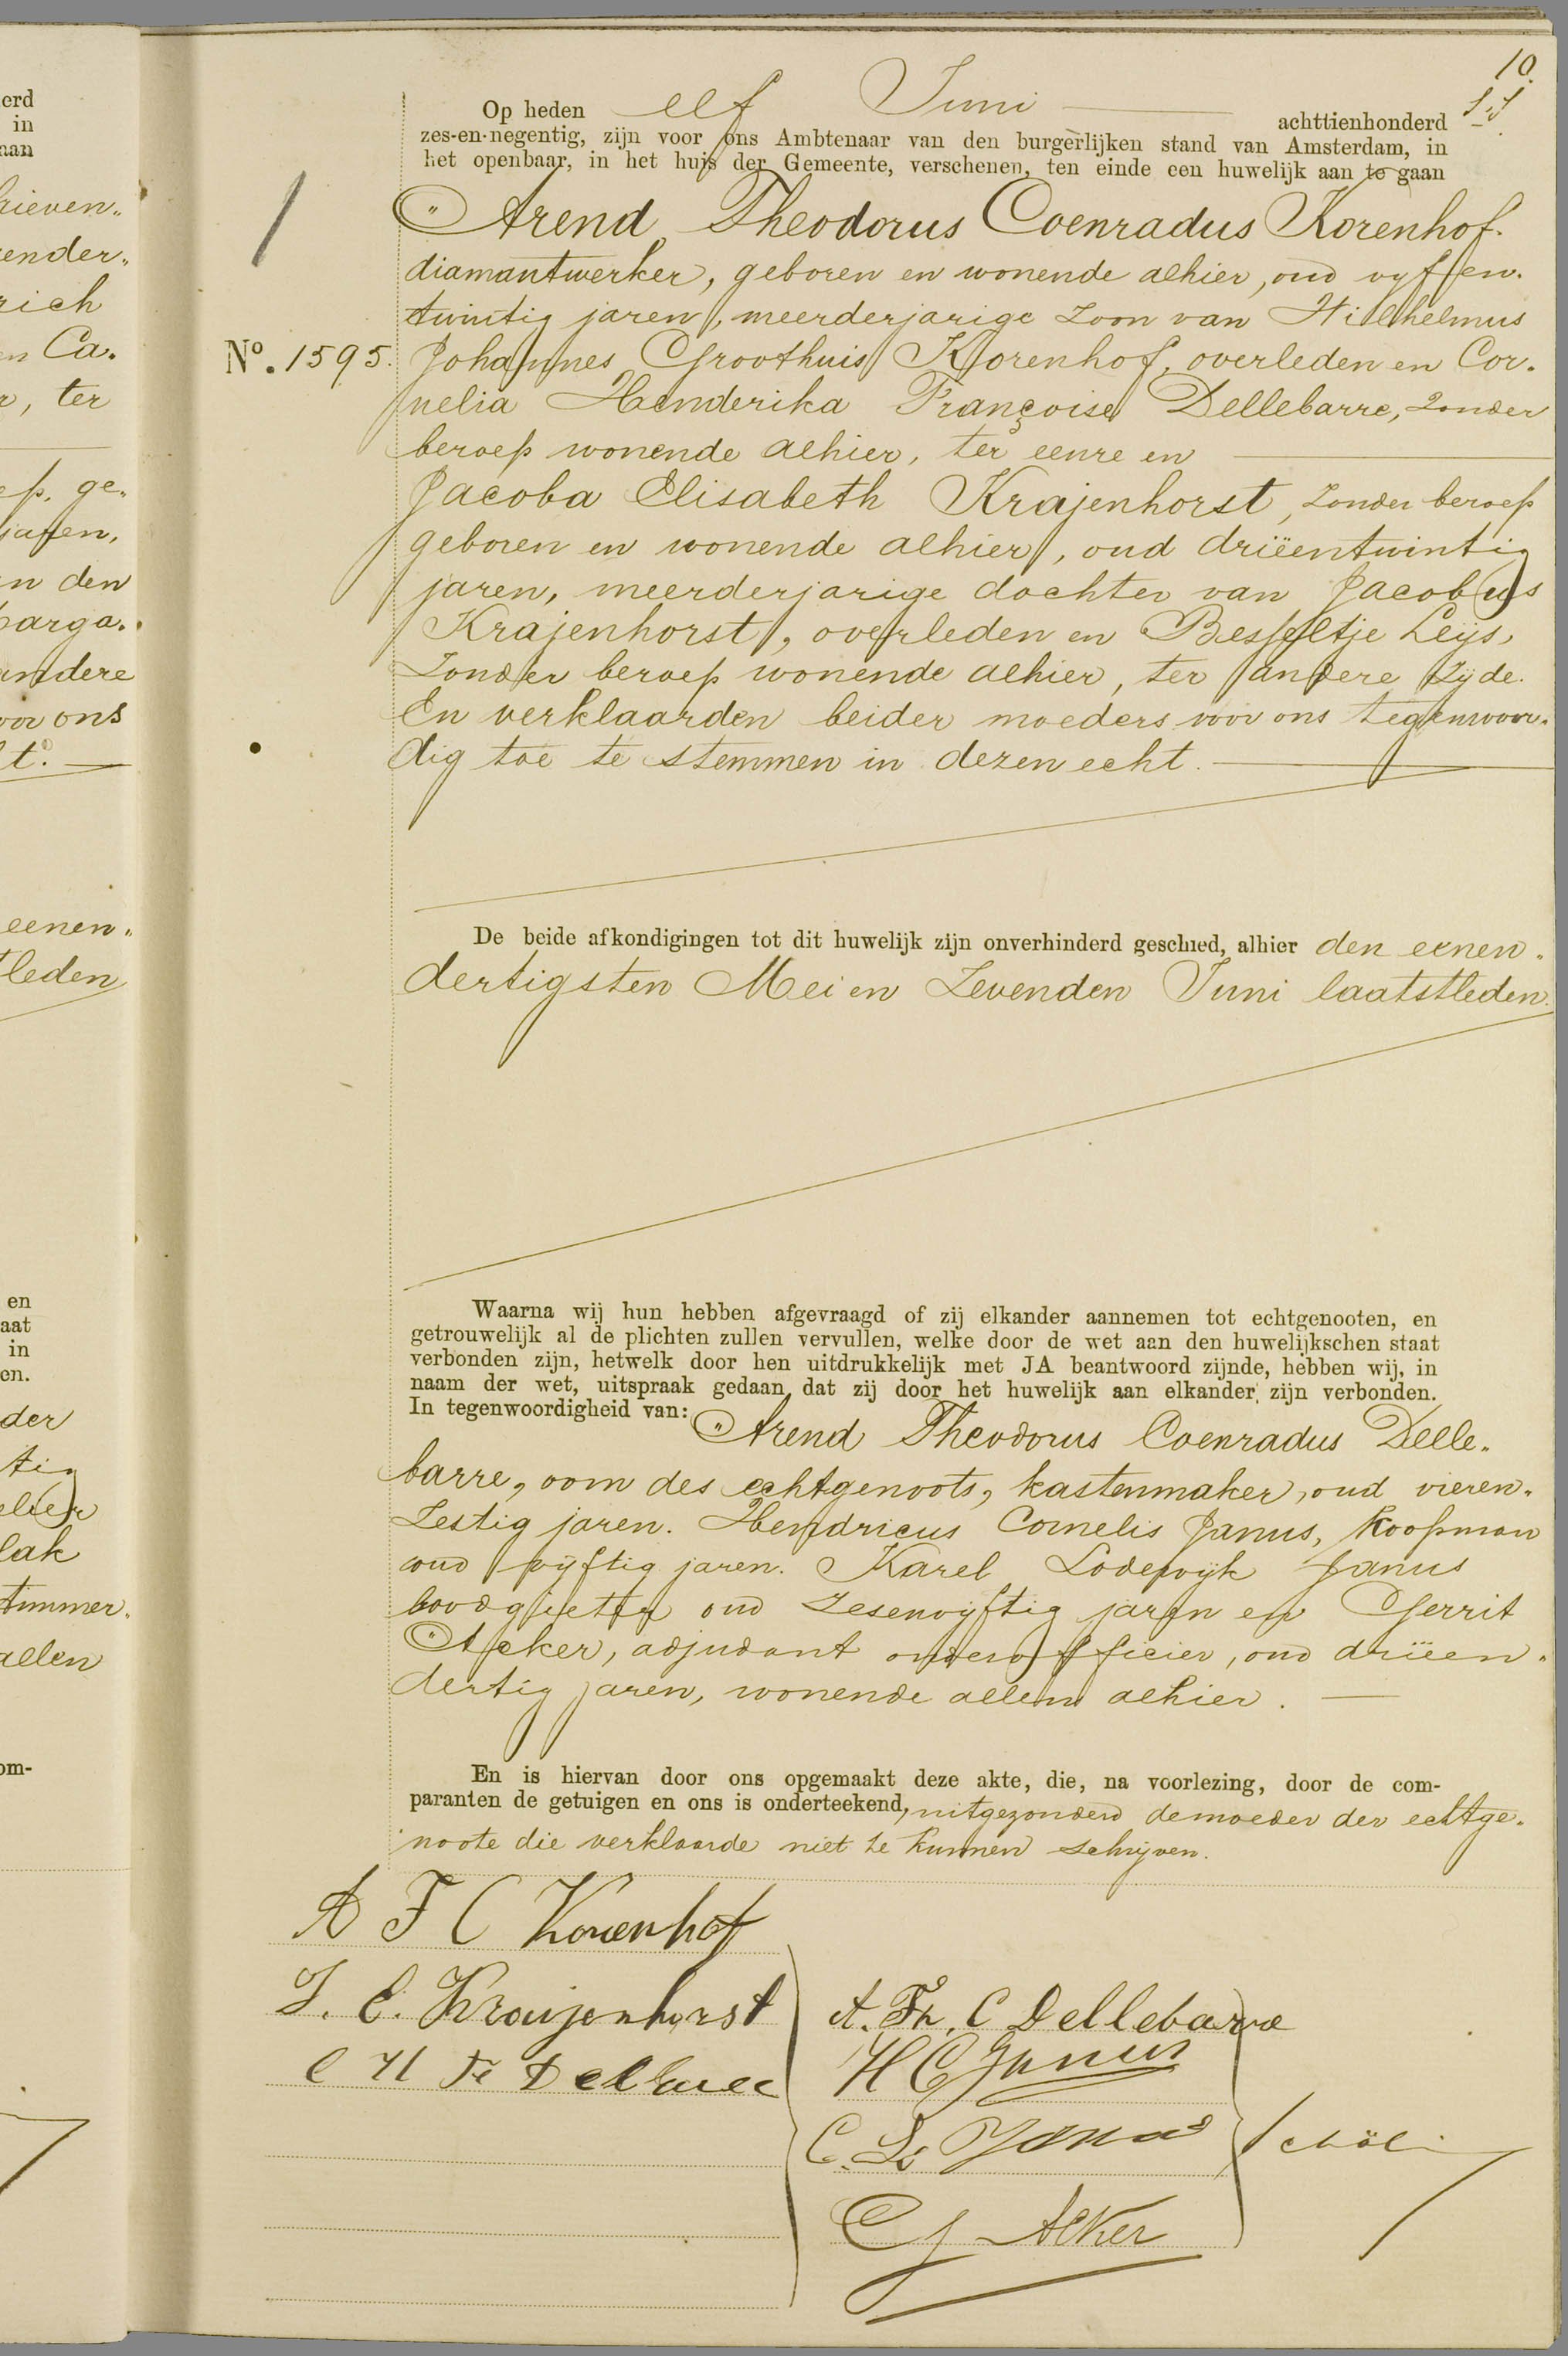 10.
Op heden elf Juni achttienhonderd
zes-en-negentig, zijn voor ons Ambtenaar van den burgerlijken stand van Amsterdam, in
het openbaar, in het huis der Gemeente, verschenen, ten einde een huwelijk aan te gaan
Arend Theodorus Coenradus Korenhof.
diamantwerker, geboren en wonende alhier, oud vyfen-
twintig jaren, meerderjarige zoon van Wilhelmus
No. 1595. Johannes Groothuis Korenhof, overleden en Cor-
nelia Henderika Françoise Dellebarre, zonder
beroep wonende alhier, ter eenre en
Jacoba Elisabeth Krajenhorst, zonder beroep
geboren en wonende alhier, oud drieëntwintig
jaren, meerderjarige dochter van Jacobus
Krajenhorst, overleden en Besseltje Leijs,
zonder beroep wonende alhier, ter andere zijde.
En verklaarden beider moeders voor ons tegenwoor-
dig toe te stemmen in dezen echt.
De beide afkondigingen tot dit huwelijk zijn onverhinderd geschied, alhier den eenen-
dertigsten Mei en zevenden Juni laatstleden.
Waarna wij hun hebben afgevraagd of zij elkander aannemen tot echtgenooten, en
getrouwelijk al de plichten zullen vervullen, welke door de wet aan den huwelijkschen staat
verbonden zijn, hetwelk door hen uitdrukkelijk met JA beantwoord zijnde, hebben wij, in
naam der wet, uitspraak gedaan dat zij door het huwelijk aan elkander zijn verbonden.
In tegenwoordigheid van: Arend Theodorus Coenradus Delle-
barre, oom des echtgenoots, kastenmaker, oud vieren-
zestig jaren. Hendricus Cornelis Janus, koopman
oud vijftig jaren. Karel Lodewijk Janus
loodgieter oud zesenvijftig jaren en Gerrit
Acker, adjudant onderofficier, oud drieën-
dertig jaren, wonende allen alhier.
En is hiervan door ons opgemaakt deze akte, die, na voorlezing, door de com-
paranten de getuigen en ons is onderteekend, uitgezonderd de moeder der echtge-
noote die verklaarde niet te kunnen schrijven.
A T C Korenhof
J. E. Kraijenhorst
A. Th. C Dellebarre
C H Fe Dellbarre
H C Janus
C. L. Janus
G Acker